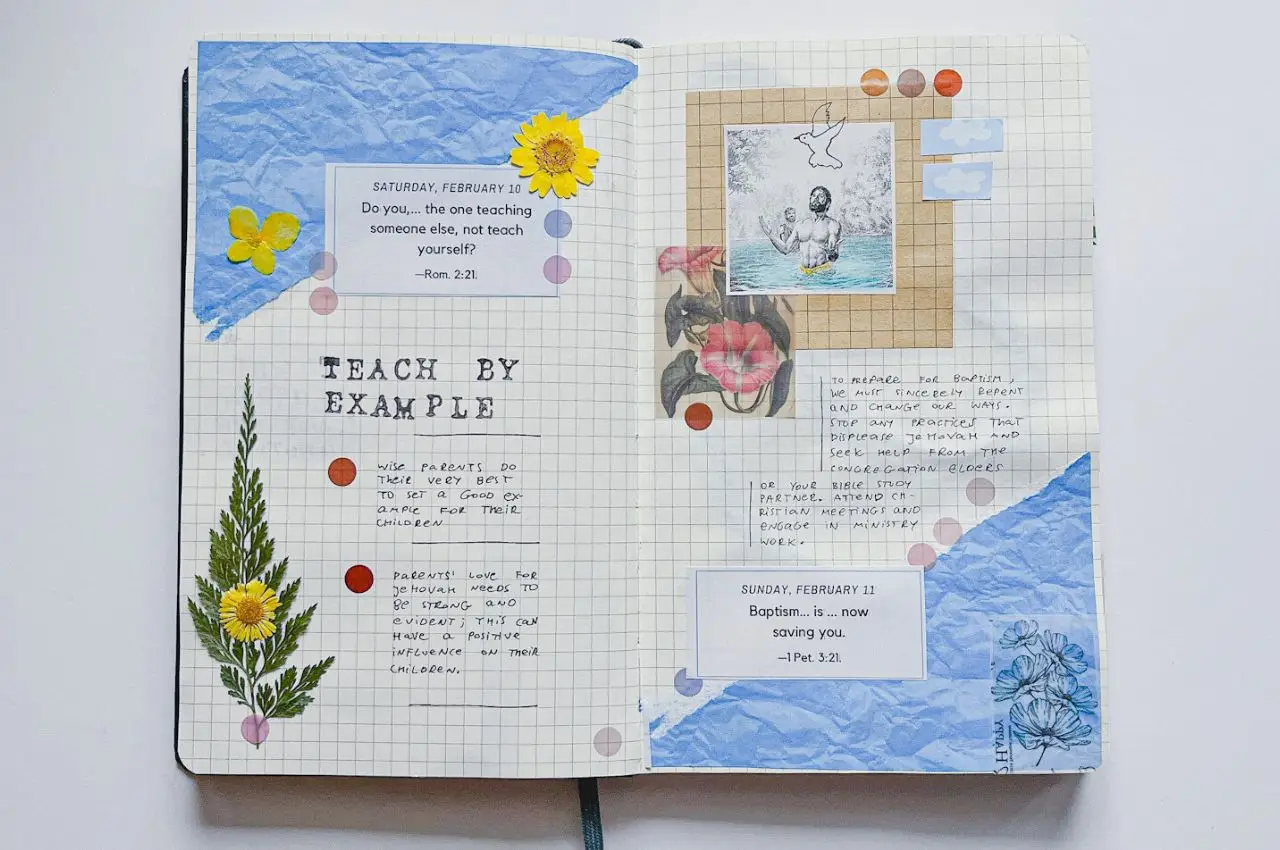 SATURDAY, FEBRUARY 10
Do you,... the one teaching
someone else, not teach
yourself?
—Rom. 2:21.
TEACH BY
EXAMPLE
WISE PARENTS DO
THEIR VERY BEST
TO SET A GOOD EX-
AMPLE FOR THEIR
CHILDREN
PARENTS' LOVE FOR
JEHOVAH NEEDS TO
BE STRONG AND
EVIDENT; THIS CAN
HAVE A POSITIVE
INFLUENCE ON THEIR
CHILDREN.
TO PREPARE FOR BAPTISM,
WE MUST SINCERELY REPENT
AND CHANGE OUR WAYS.
STOP ANY PRACTICES THAT
DISPLEASE JEHOVAH AND
SEEK HELP FROM THE
CONGREGATION ELDERS
OR YOUR BIBLE STUDY
PARTNER. ATTEND CH-
RISTIAN MEETINGS AND
ENGAGE IN MINISTRY
WORK.
SUNDAY, FEBRUARY 11
Baptism... is ... now
saving you.
—1 Pet. 3:21.
HAPPY